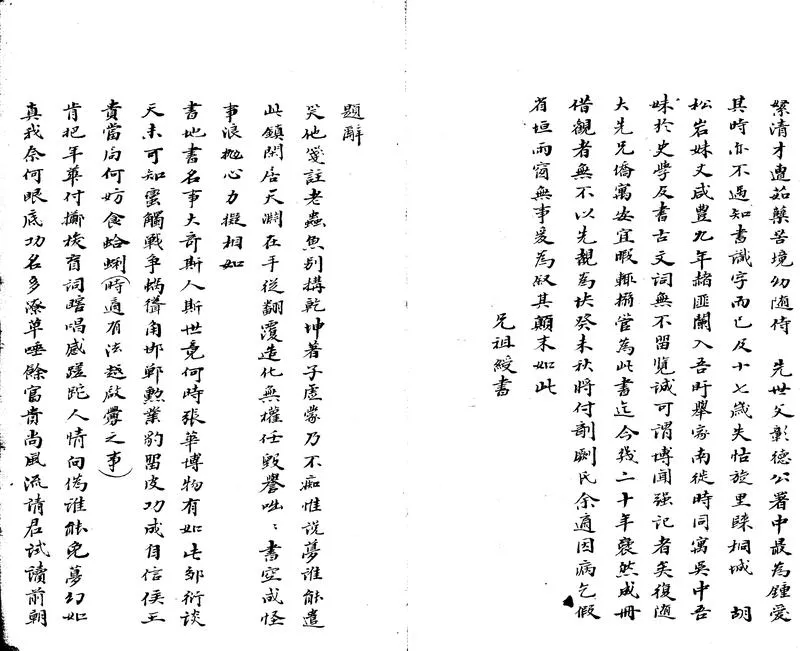 絮清才遭茹蘗苦境幼随侍　先世父彰德公署中最為鍾愛
其時亦不過知書識字而已及十七歲失怙旋里隸桐城　胡
松岩妹丈咸豐九年赭匪闌入吾盱舉家南徙時同寓吳中吾
妹於史學及書古文詞無不畱覽誠可謂博聞强記者矣復随
大先兄僑寓安宜暇輒搦管為此書迄今幾二十年裒然成冊
借觀者無不以先覩為快癸未秋將付剞劂氏余適因病乞假
省垣雨窗無事爰為叙其顛末如此
兄祖綬書
題辭
笑他箋註老蟲魚别構乾坤著子虛蒙乃不痴惟説夢誰能遣
此鎮閑居天淵在手從翻覆造化無權任毀譽咄〻書空成怪
事浪抛心力擬相如
書地書名事大奇斯人斯世竟何時張華博物有如此鄒衍談
天未可知蠻觸戰争蝸獲角邯鄲勲業豹畱皮功成自信侯王
貴當局何妨食蛤蜊（時適有法越啟釁之事）
肯把年華付擲梭盲詞瞎唱感蹉跎人情向偽誰能免夢幻如
真我奈何眼底功名多潦草唾餘富貴尚風流請君試讀前朝